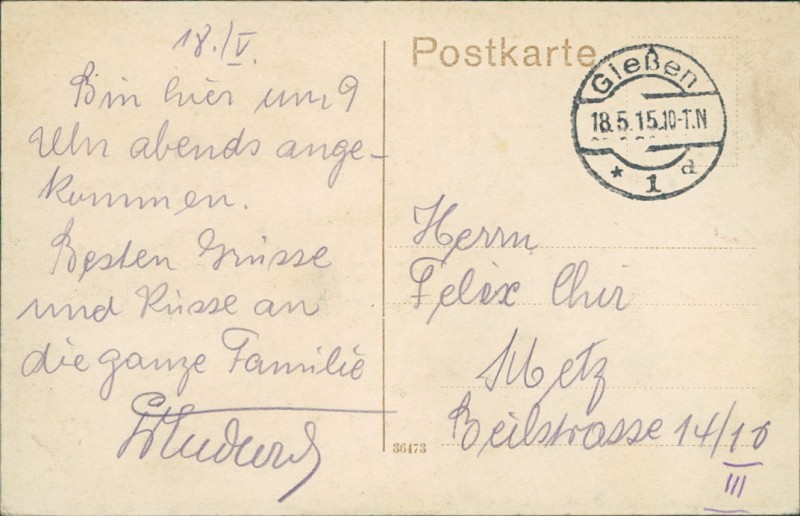 18./V.
Bin hier um 9
Uhr abends ange-
kommen.
Besten Grüsse
und Küsse an
die ganze Familie
Postkarte
Gießen
18.5.15.10-11.N
* 1 d
Herrn
Felix Chir
Metz
Beilstrasse 14/18
III
36473